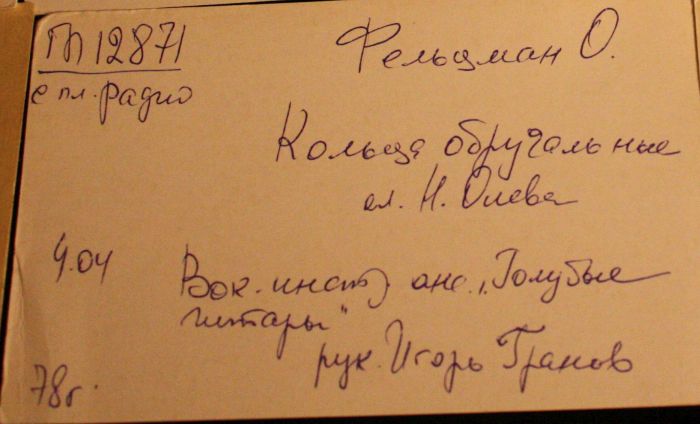 ГП 12871
с пл. радио
Фельцман О.
Кольца обручальные
сл. Н. Олева
4.04
Вок. инстр анс. „Голубые
гитары"
рук. Игорь Гранов
78г.